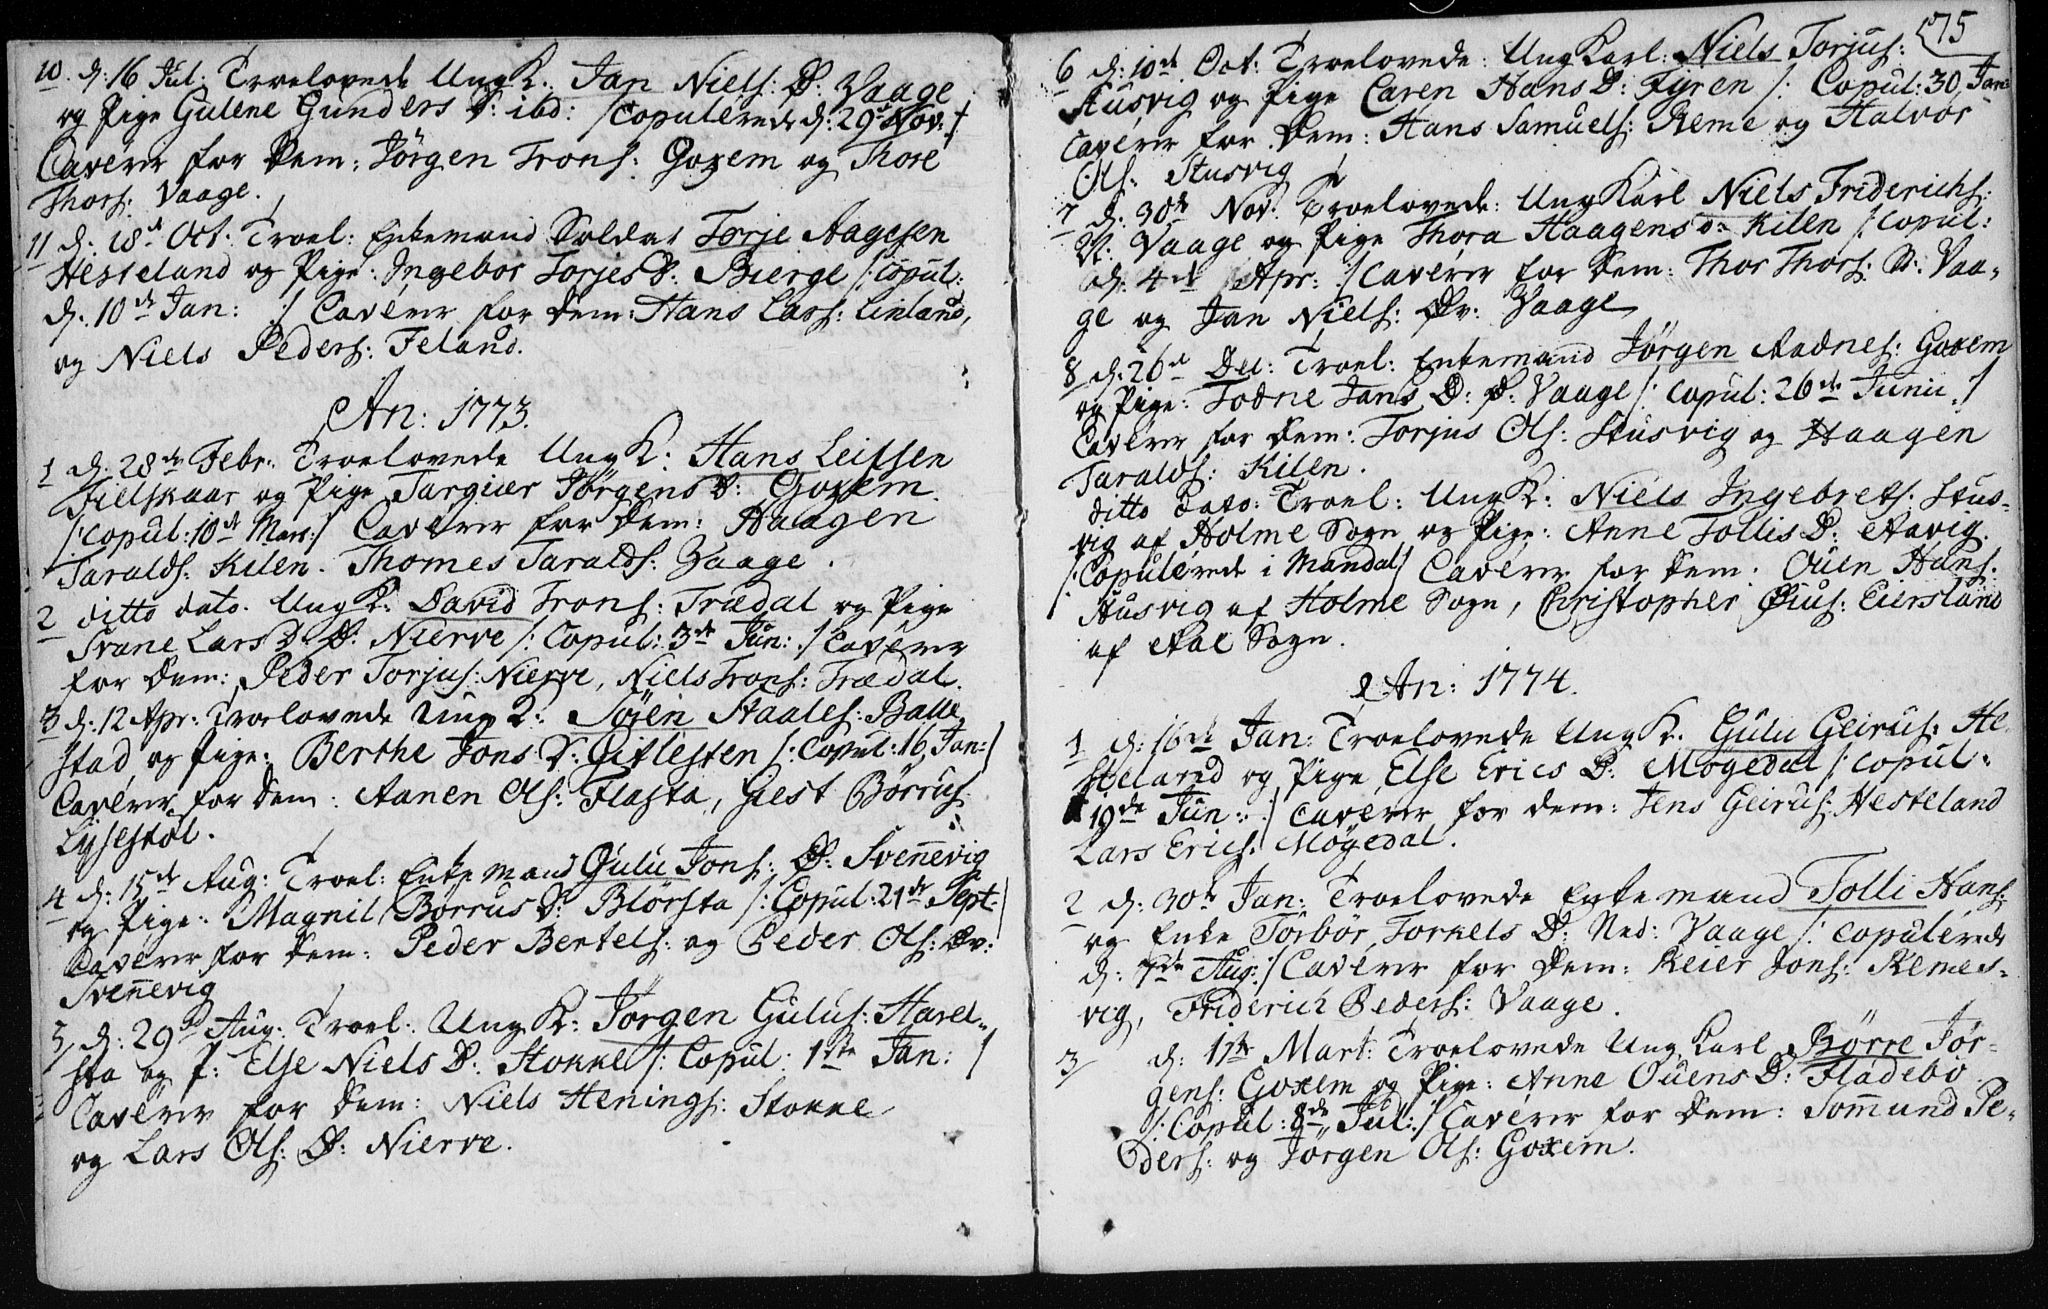 10. d: 16 Jul: Troelovede Ung K: Jan Niels: D: Vaage
og Pige Gulene Gunders D: ibd: /Copulerede d: 29de Nov: /
Caverer for Dem: Jörgen Trons: Goxem og Thore
Thors: Vaage.
11 d: 18d Oct. Troel: Enkemand Soldat Torje Aagesen
Hesseland og Pige: Ingebor Torjes D: Bierge /: Copul:
d: 10de Jan: :/ Caverer for Dem: Hans Lars: Linland,
og Niels Peders: Feland.
An: 1773.
1 d: 28de Febr: Troelovede Ung K: Hans Leifsen
Fielskaar og Pige Targier Jörgens D: Goxem
/: Copul: 10de Mart:/ Caverer for Dem: Haagen
Taralds: Kilen. Thomes Taralds: Vaage.
2 ditto dato. Ung K: David Trons: Trædal og Pige
Svane Lars D: D: Nierve /: Copul: 3de Jun: :/ Caverer
for Dem: Peder Torjus: Nierve, Niels Trons: Trædal.
3 d: 12 Apr: Troelovede Ung K: Söien Staales: Balle
stad og Pige: Berthe Jons D: Giflesten /: Copul: 16 Jan: /
Caverer for Dem: Aanen Ols: Flasta, Giest Börrus:
Lysestöl.
4 d: 15de Aug: Troel: Enkemand Gulu Jons: D: Svenevig
og Pige: Magnil Börrus D: Blörsta /: Copul: 21de Sept: /
Caverer for Dem: Peder Bertels: og Peder Ols: Dv:
Svenevig
5 d: 29d Aug: Troel: Ung K: Jörgen Gulus: Harel-
sta og P: Else Niels D: Stokke /: Copul: 1ste Jan: /
Caverer for Dem: Niels Henings: Stokke
og Lars Ols: D: Nierve.
175
6 d: 10de Oct: Troelovede: Ung Karl: Niels Torjus:
Stusvig og Pige Caren Hans D: Fyren /: Copul: 30 Jan:
Caverer for Dem: Hans Samuels: Reme og Halvor
Ols: Stusvig
7 d: 30de Nov: Troelovede: Ung Karl Niels Friderichs:
Vaage og Pige Thora Haagens D: Kilen /: Copul:
d: 4de Apr: :/ Caverer for Dem: Thor Thors: D: Vaa-
ge og Jan Niels: Dv: Vaage
8 d: 26d Dec: Troel: Enkemand Jörgen Aadnes: Goxem
og Pige: Todne Jans D: D: Vaage /: Copul: 26de Junii :/
Caverer for Dem: Torjus Ols: Stusvig og Haagen
Taralds: Kilen.
ditto Dato: Troel: Ung K: Niels Ingebrets: Stus-
vig af Holme Sogn og Pige: Anne Tollis D: Aavig.
/: Copulerede i Mandal / Caverer for Dem: Ouen Hans:
Stusvig af Holme Sogn, Christopher Eiersland
af Sogn.
An: 1774.
1 d: 16de Jan: Troelovede Ung K. Gulu Geirus: He-
steland og Pige Else Erics D: Mögedal /: Copul:
19de Jun: :/ Caverer for dem: Jens Geirus: Hesteland
Lars Erics: Mögedal.
2 d: 30de Jan: Troelovede Enkemand Tolli Hans:
og Enke Torbör Torkels D: Ned: Vaage /: Copulerede
d: 7de Aug: / Caverer for Dem: Reier Jons: Remes-
vig, Friderich Peders: Vaage.
3 d: 17de Mart: Troelovede Ung Karl Börre Jör-
gens: Goxem og Pige: Anne Ouens D: Fladebo
/: Copul: 8de Jul: / Caverer for Dem: Sommund Pe-
ders: og Jörgen Ols: Goxem.